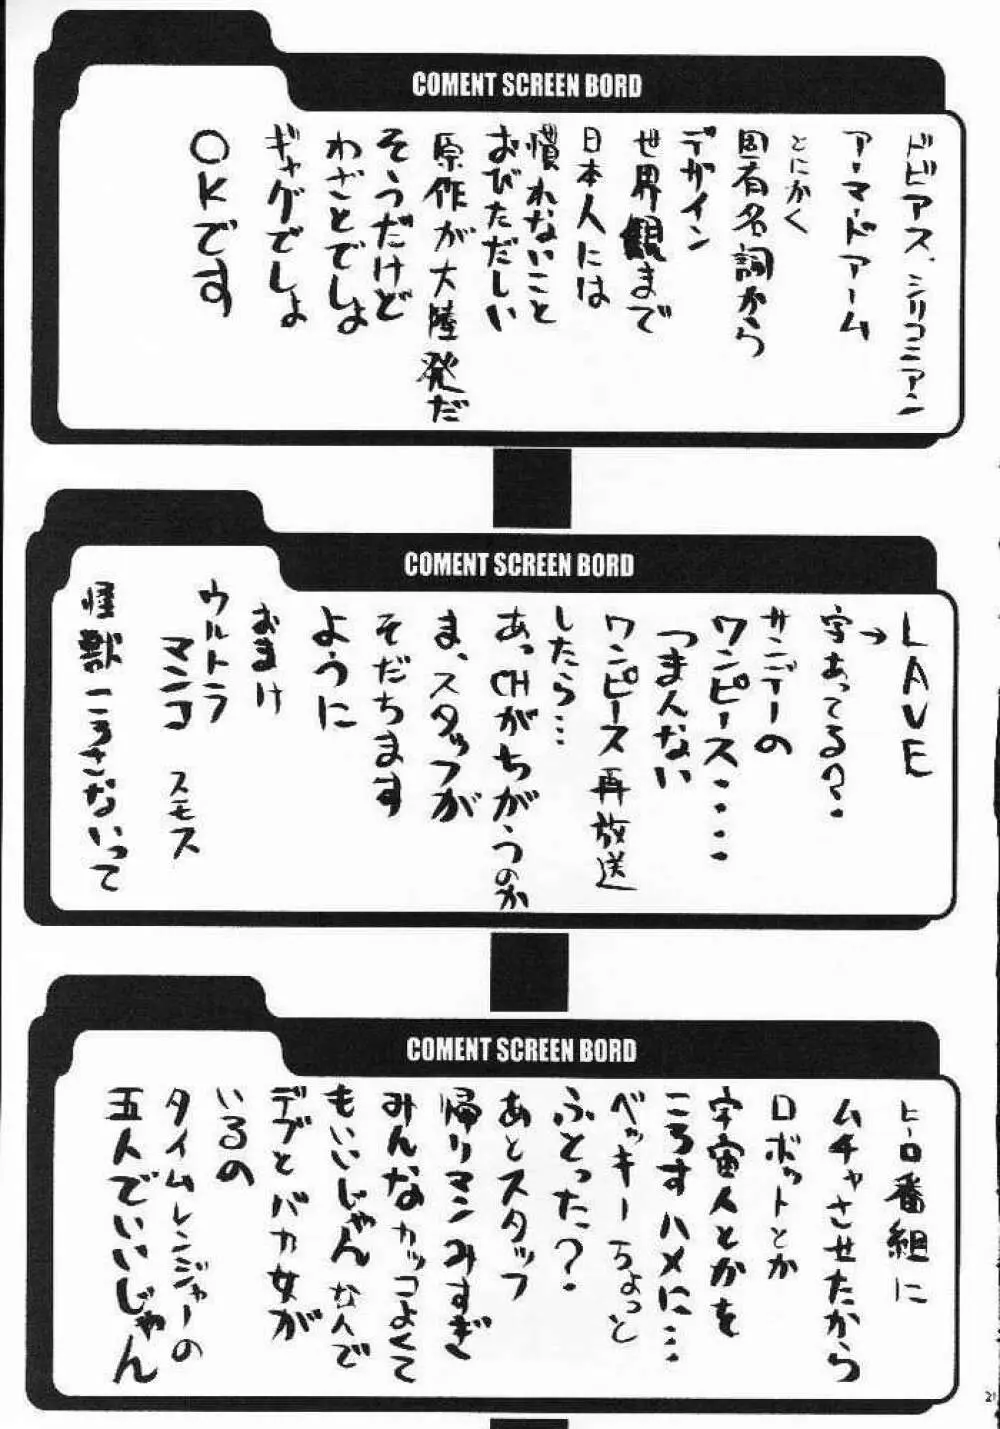 COMENT SCREEN BORD
ドビアス、シリコニアン
アーマードアーム
とにかく
固有名詞から
デザイン
世界観まで
日本人には
慣れないこと
おびただしい
原作が大陸発だ
そうだけど
わざとでしょ
ギャグでしょ
OKです
COMENT SCREEN BORD
LAVE
→字あってる?
サンデーの
ワンピース・・・・
つまんない
ワンピース再放送
したら…
あっCHがちがうのか
ま、スタッフが
そだちます
ように
おまけ
ウルトラ
マンコ スモス
怪獣ころさないって
COMENT SCREEN BORD
ヒーロー番組に
ムチャさせたから
ロボットとか
宇宙人とかを
ころすハメに…
ベッキーちょっと
ふとった?
あとスタッフ
帰りマンみすぎ
みんなカッコよくて
もいいじゃんなんで
デブとバカ女が
いるの
タイムレンジャーの
五人でいいじゃん
21